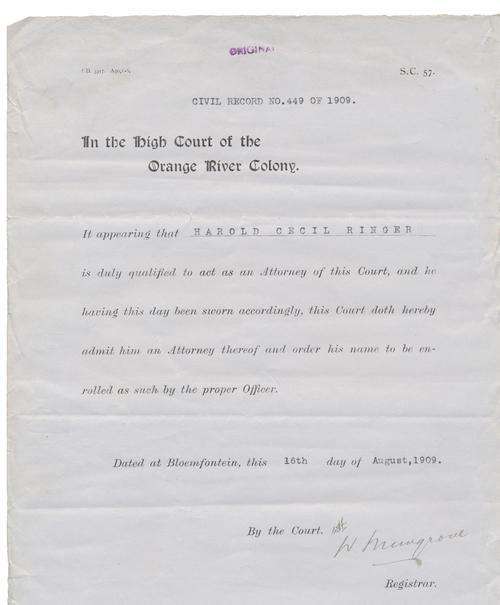 ORIGINAL
S.C. 57.
CIVIL RECORD NO.449 OF 1909.
In the High Court of the
Orange River Colony.
It appearing that HAROLD CECIL RINGER
is duly qualified to act as an Attorney of this Court, and he
having this day been sworn accordingly, this Court doth hereby
admit him an Attorney thereof and order his name to be en-
rolled as such by the proper Officer.
Dated at Bloemfontein, this 16th day of August,1909.
By the Court.
Registrar.